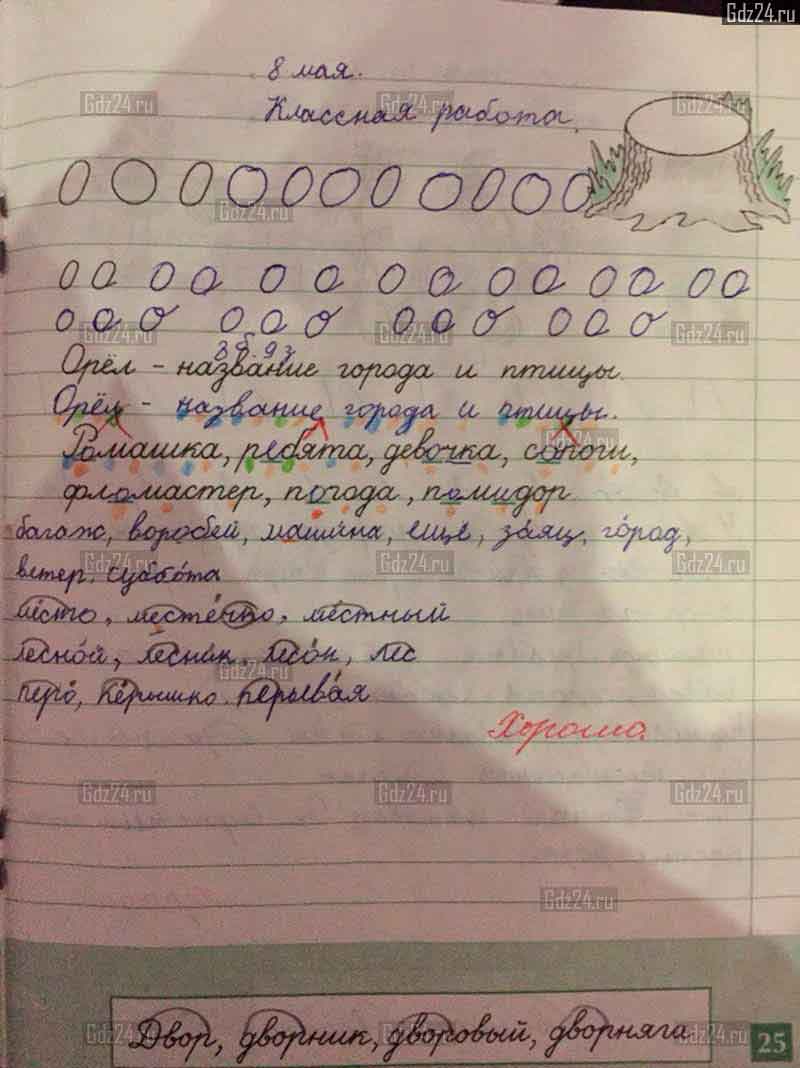 Gdz24.ru
8 мая.
Классная работа.
О О О О О О О О О О О
О О О О О О О О О О О О О О
О О О О О О О О О О О О
Орёл - название города и птицы.
Орёл - название города и птицы.
Ромашка, ребята, девочка, сапоги,
фломастер, погода, помидор
багаж, воробей, машина, ещё, заяц, город,
ветер, суббота
место, местечко, местный
лесной, лесник, лесок, лес
перо, пёрышко,
Хорошо.
Двор, дворник, дворовый, дворняга
25